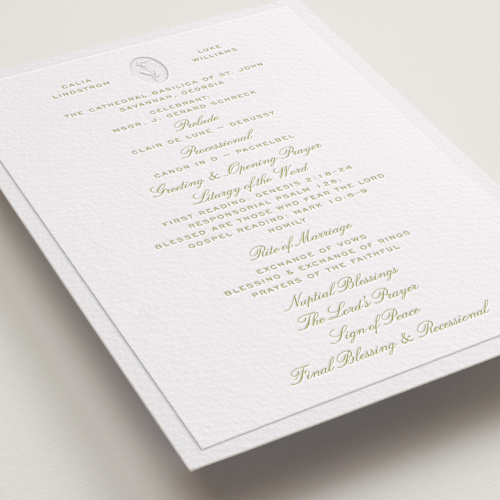 CALIA
LINDSTROM
LUKE
WILLIAMS
THE CATHEDRAL BASILICA OF ST. JOHN
SAVANNAH, GEORGIA
CELEBRANT:
MSGR. J. GERARD SCHRECK
Prelude
CLAIR DE LUNE – DEBUSSY
Processional
CANON IN D – PACHELBEL
Greeting & Opening Prayer
Liturgy of the Word
FIRST READING: GENESIS 2:18-24
RESPONSORIAL PSALM 128:
BLESSED ARE THOSE WHO FEAR THE LORD
GOSPEL READING: MARK 10:6-9
HOMILY
Rite of Marriage
EXCHANGE OF VOWS
BLESSING & EXCHANGE OF RINGS
PRAYERS OF THE FAITHFUL
Nuptial Blessings
The Lord's Prayer
Sign of Peace
Final Blessing & Recessional